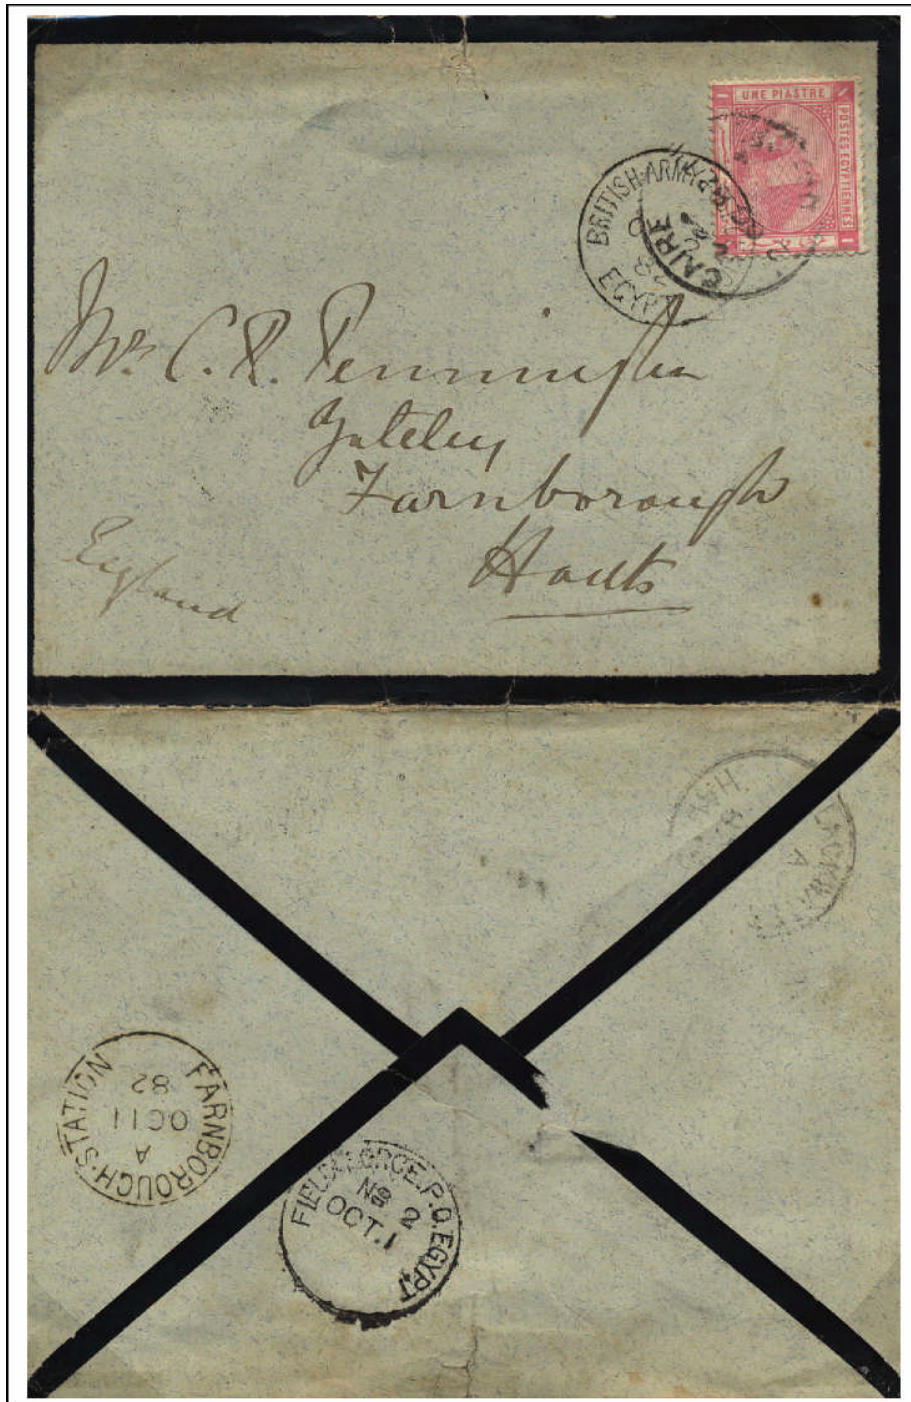 UNE PIASTRE
POSTES EGYPTIENNES
BRITISH ARMY
EGYPT
CAIRE
Mrs C. R. Pennington
Yateley
Farnborough
Hants
England
A
FARNBOROUGH·STATION
A
OC 11
82
FIELD FORCE.P.O.EGYPT
No 2
OCT. 1